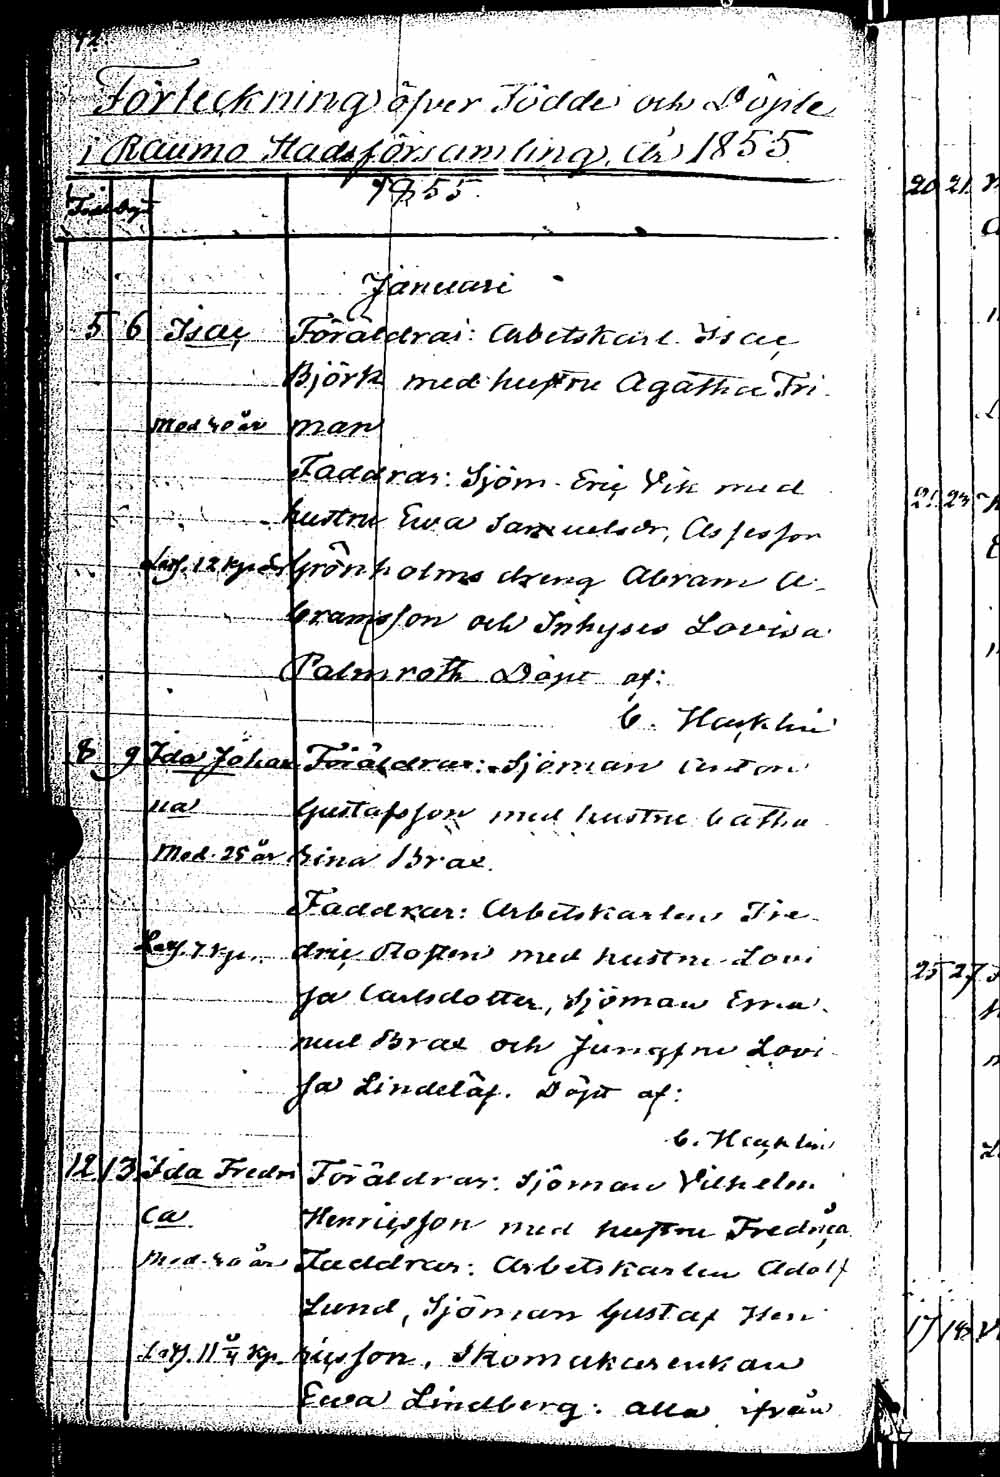 42.
Förteckning öfver Födde och Döpte
i Raumo Stadsförsamling, År 1855
Född Döpt 1855.
Januari
5 6 Isac Föräldrar: Arbetskarl Isac
Björk med hustru Agatha Fri-
Mod 40 år man
Faddrar: Sjöm. Eric Vik med
hustru Ewa Samuelsdr, Assessor
12 Kp. Grönholms dreng Abram A-
bramsson och Inhyses Lovisa
Palmroth Döpt af:
C. Hacklin
8 9 Ida Johan Föräldrar: Sjöman Anton
na Gustafsson med hustru Catha
Mod. 25 år rina Brax.
Faddrar: Arbetskarlen Fre-
7 Kp. dric med hustru Lovi
sa Carlsdotter, Sjöman Ema-
nuel Brax och Jungfru Lovi
sa Lindelöf. Döpt af:
C. Hacklin
12 13 Ida Fredri Föräldrar: Sjöman Vilhelm
ca Henricsson med hustru Fredrica
Mod. 40 år Faddrar: Arbetskarlen Adolf
Lund, Sjöman Gustaf Hen
11 Kp. ricsson, Skomakarenkan
Ewa Lindberg: alla ifrån
20 21
21 23
25 27
17 18